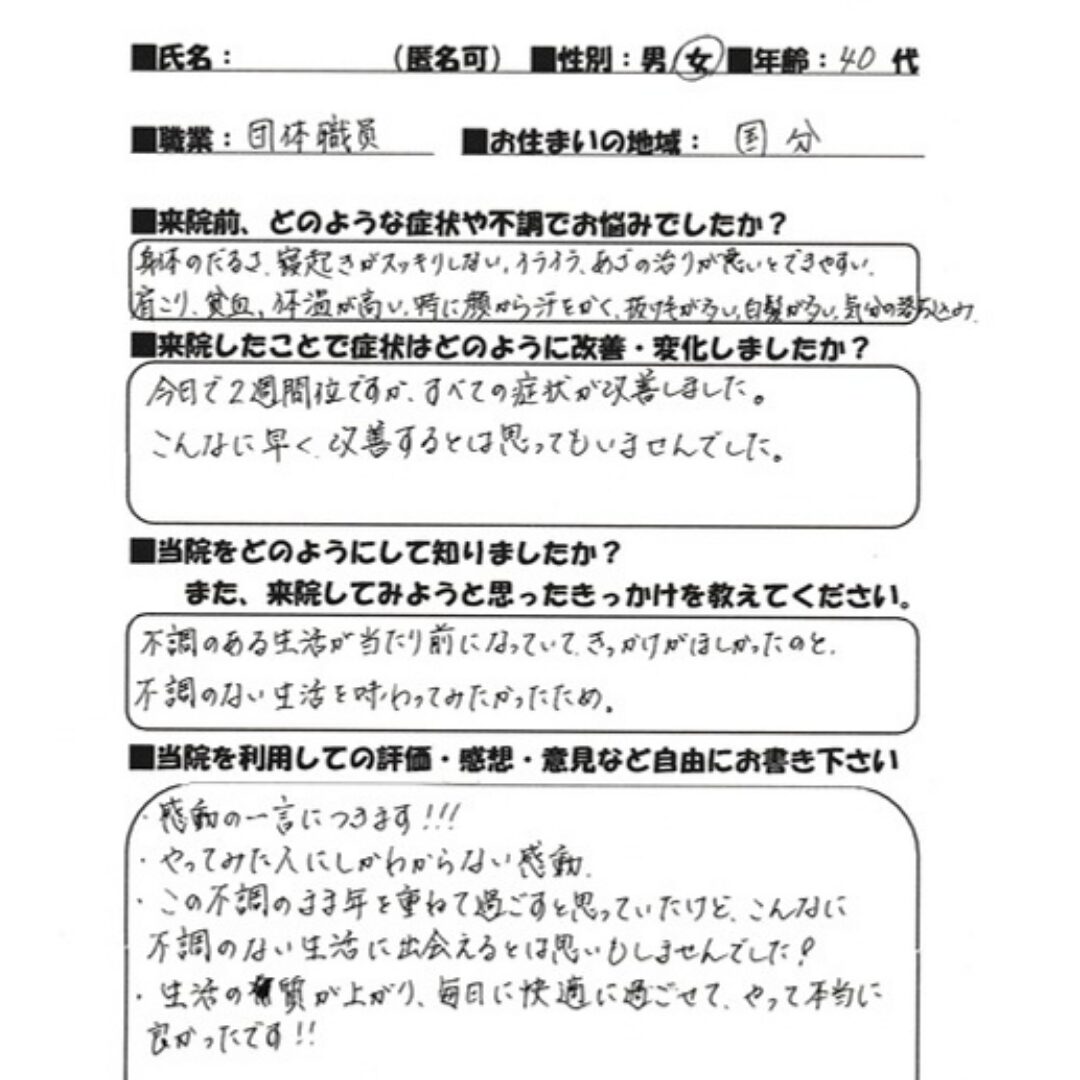 ■氏名： （匿名可） ■性別：男/女 ■年齢：40代
■職業：団体職員 ■お住まいの地域：国分
■来院前、どのような症状や不調でお悩みでしたか？
身体のだるさ、寝起きがスッキリしない、イライラ、あざの治りが悪いとできやすい、
肩こり、貧血、体温が高い、時に顔から汗をかく、抜け毛が多い、白髪が多い、気分の落ち込み、
■来院したことで症状はどのように改善・変化しましたか？
今日で2週間位ですが、すべての症状が改善しました。
こんなに早く、改善するとは思ってもいませんでした。
■当院をどのようにして知りましたか？
また、来院してみようと思ったきっかけを教えてください。
不調のある生活が当たり前になっていて、きっかけがほしかったのと、
不調のない生活を味わってみたかったため。
■当院を利用しての評価・感想・意見など自由にお書き下さい
・感動の一言につきます!!!
・やってみた人にしかわからない感動、
・この不調のまま年を重ねて過ごすと思っていたけど、こんなに
不調のない生活に出会えるとは思いもしませんでした!
・生活の質が上がり、毎日に快適に過ごせて、やって本当に
良かったです!!